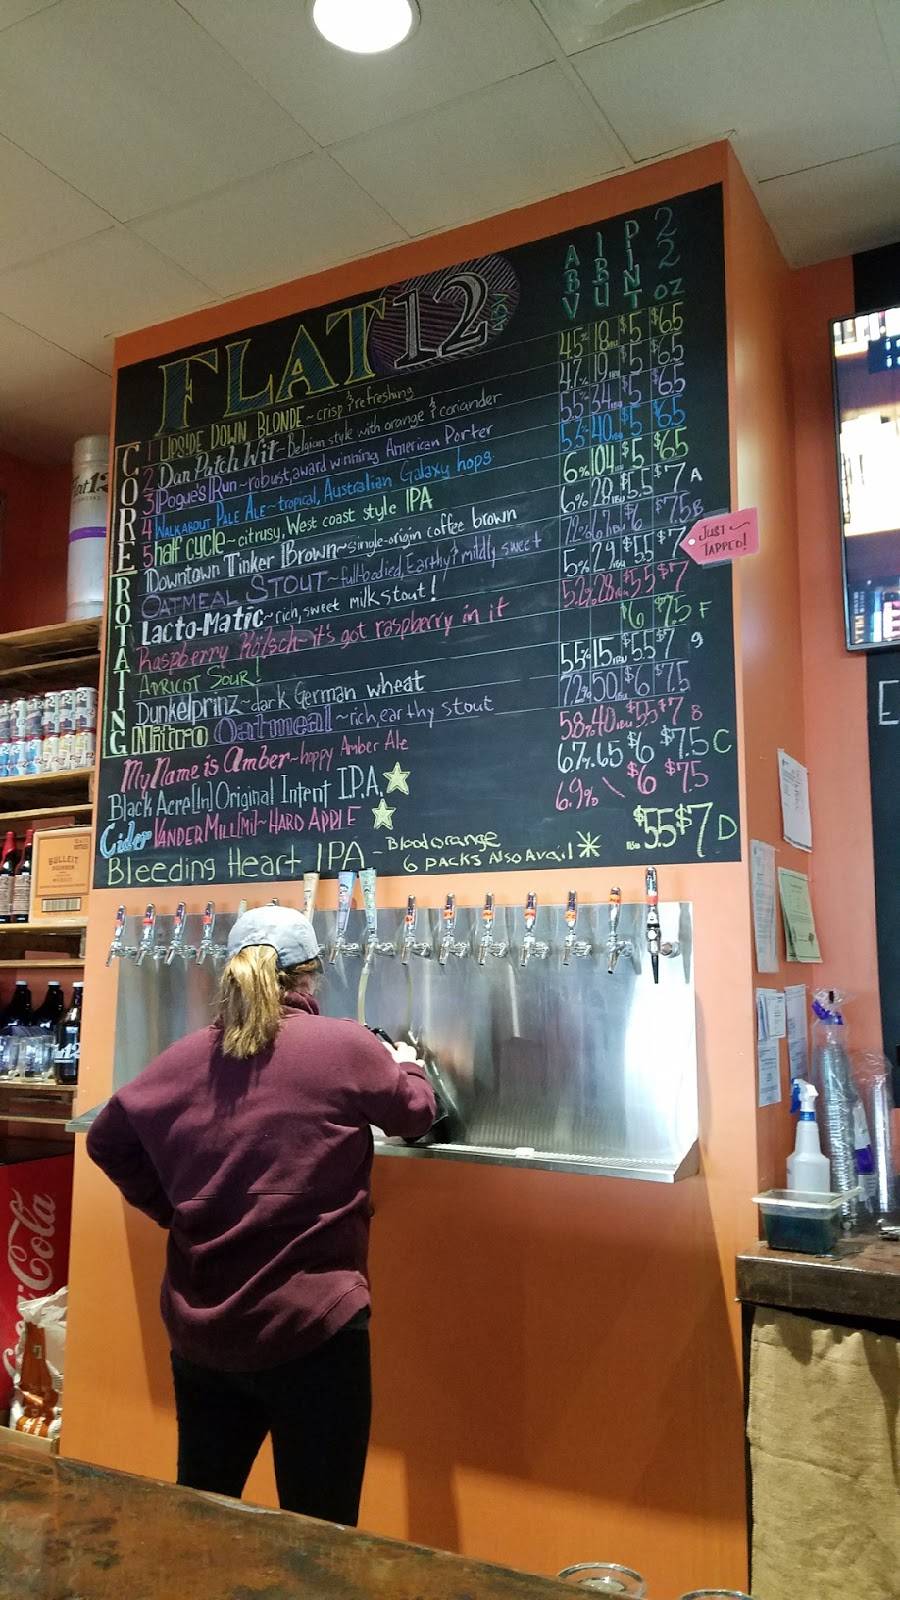 FLAT 12
ABV IBU PINT 22 OZ
CORE
1 UPSIDE DOWN BLONDE~crisp & refreshing 4.5% 18 IBU $5 $6.5
2 Dan Patch Wit~Belgian style with orange & coriander 4.7% 19 IBU $5 $6.5
3 Pogue's Run~robust, award winning American Porter 5.5% 34 IBU $5 $6.5
4 WALKABOUT PALE ALE~tropical, Australian Galaxy hops. 5.5% 40 IBU $5 $6.5
5 half cycle~citrusy, West coast style IPA 6% 104 IBU $5 $6.5
ROTATING
Downtown Tinker Brown~single-origin coffee brown 6% 28 IBU $5.5 $7 A
OATMEAL STOUT~full-bodied, Earthy & mildly sweet $6 $7.5 B
Lacto-Matic~rich, sweet milk stout! 5% 29 IBU $5.5 $7
JUST TAPPED!
Raspberry Kölsch~it's got raspberry in it 5.2% 28 IBU $5.5 $7
APRICOT SOUR! $6 $7.5 F
Dunkelprinz~dark German wheat 5.5% 15 IBU $5.5 $7 9
Nitro Oatmeal~rich, earthy stout 7.2% 50 IBU $6 $7.5
My Name is Amber~hoppy Amber Ale 5.8% 40 IBU $5.5 $7 8
Black Acre [In] Original Intent I.P.A. 6.7% 65 $6 $7.5 C
Cider VANDER MILL [MI]~HARD APPLE 6.9% \ $6 $7.5
Bleeding Heart IPA - Blood orange $5.5 $7 D
6 PACKS Also Avail
Flat12
BULLEIT
BOURBON
Coca-Cola
E